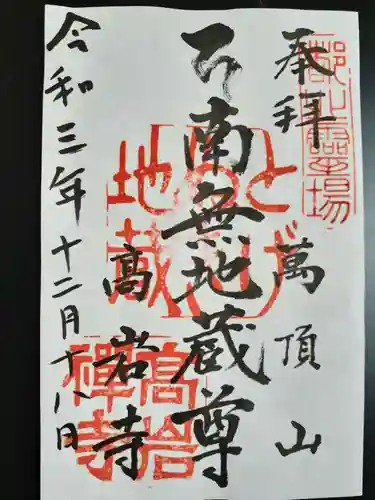 奉拝
萬頂山
南無地蔵尊
高岩寺
令和三年十二月十八日
とげぬき
地蔵
高岩
禅寺
霊場